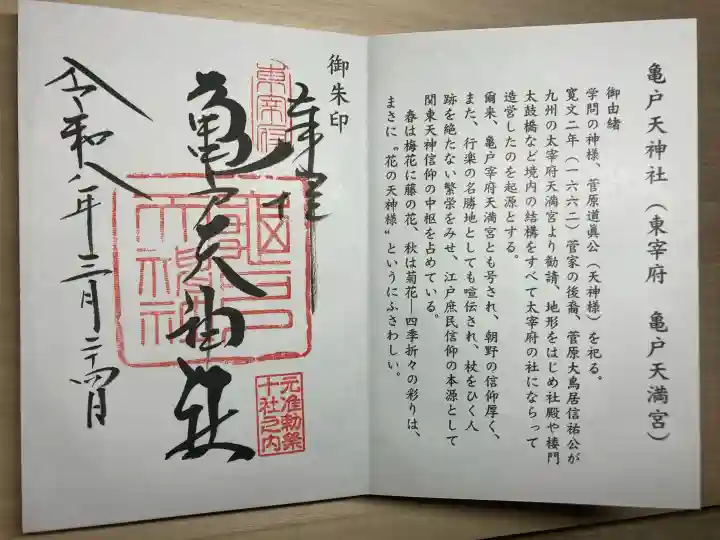 亀戸天神社（東宰府　亀戸天満宮）
御由緒
学問の神様、菅原道眞公（天神様）を祀る。
寛文二年（一六六二）菅家の後裔、菅原大鳥居信祐公が
九州の太宰府天満宮より勧請、地形をはじめ社殿や楼門
太鼓橋など境内の結構をすべて太宰府の社にならって
造営したのを起源とする。
爾来、亀戸宰府天満宮とも号され、朝野の信仰厚く、
また、行楽の名勝地としても喧伝され、杖をひく人
跡を絶たない繁栄をみせ、江戸庶民信仰の本源として
関東天神信仰の中枢を占めている。
春は梅花に藤の花、秋は菊花―四季折々の彩りは、
まさに〝花の天神様〟というにふさわしい。
御朱印
奉拝
東宰府
亀戸天神社
亀戸天神社
元准勅祭
十社之内
令和八年三月二十四日